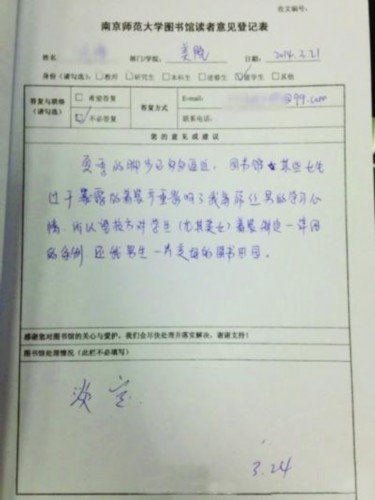 文编号：
南京师范大学图书馆读者意见登记表
姓名 部门/学院： 美院 日期： 2014.3.21
身份（请勾选）：□教师 □研究生 □本科生 □进修生 ☑留学生 □其他
答复与联络 □ 希望答复 答复方式 E-mail: @qq.com
（请勾选） ☑ 不必答复 联系电话：
您的意见或建议
夏季的脚步已匆匆逼近，图书馆某些女生
过于暴露的着装严重影响了我等屌丝男的学习心
情，所以望校方对学生（尤其美女）着装制定一详细
的条例，还我男生一片的图书园。
感谢您对图书馆的关心与爱护，我们会尽快处理并落实解决，谢谢支持！
图书馆处理情况（此栏不必填写）
淡定
3.24